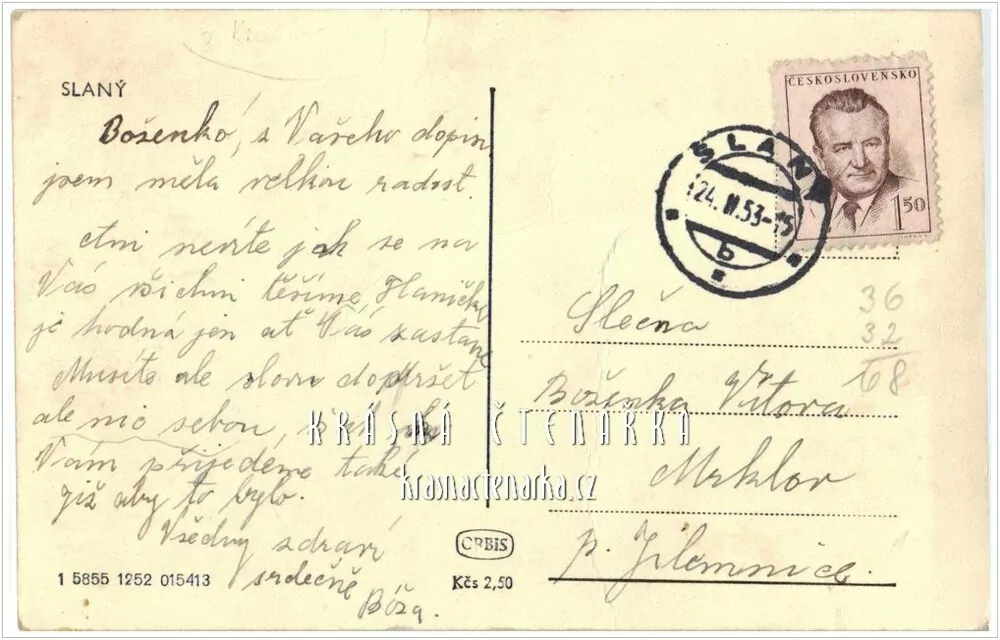 SLANÝ
Boženko, z Vašeho dopisu
jsem měla velkou radost
Ani nevíte jak se na
Vás všichni těšíme, Hanička
je hodná jen ať Vás zastane
Musíte ale slovo dodržet
ale nic sebou,
Vám přijedeme také
již aby to bylo.
Všechny zdraví
srdečně
Boža.
1 5855 1252 015413
ORBIS
Kčs 2,50
ČESKOSLOVENSKO
1 50
SLANÝ
24. II. 53-15
b
Slečna
Boženka Vítova
Mrklov
p. Jilemnice.
36
32
68
KRÁSNÁ ČTENÁŘKA
krasnactenarka.cz